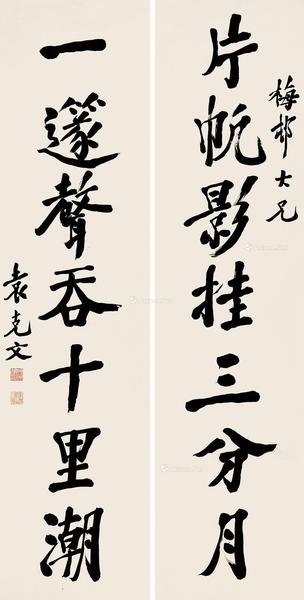 梅邨大兄
片帆影挂三分月
一邃聲吞十里潮
袁克文